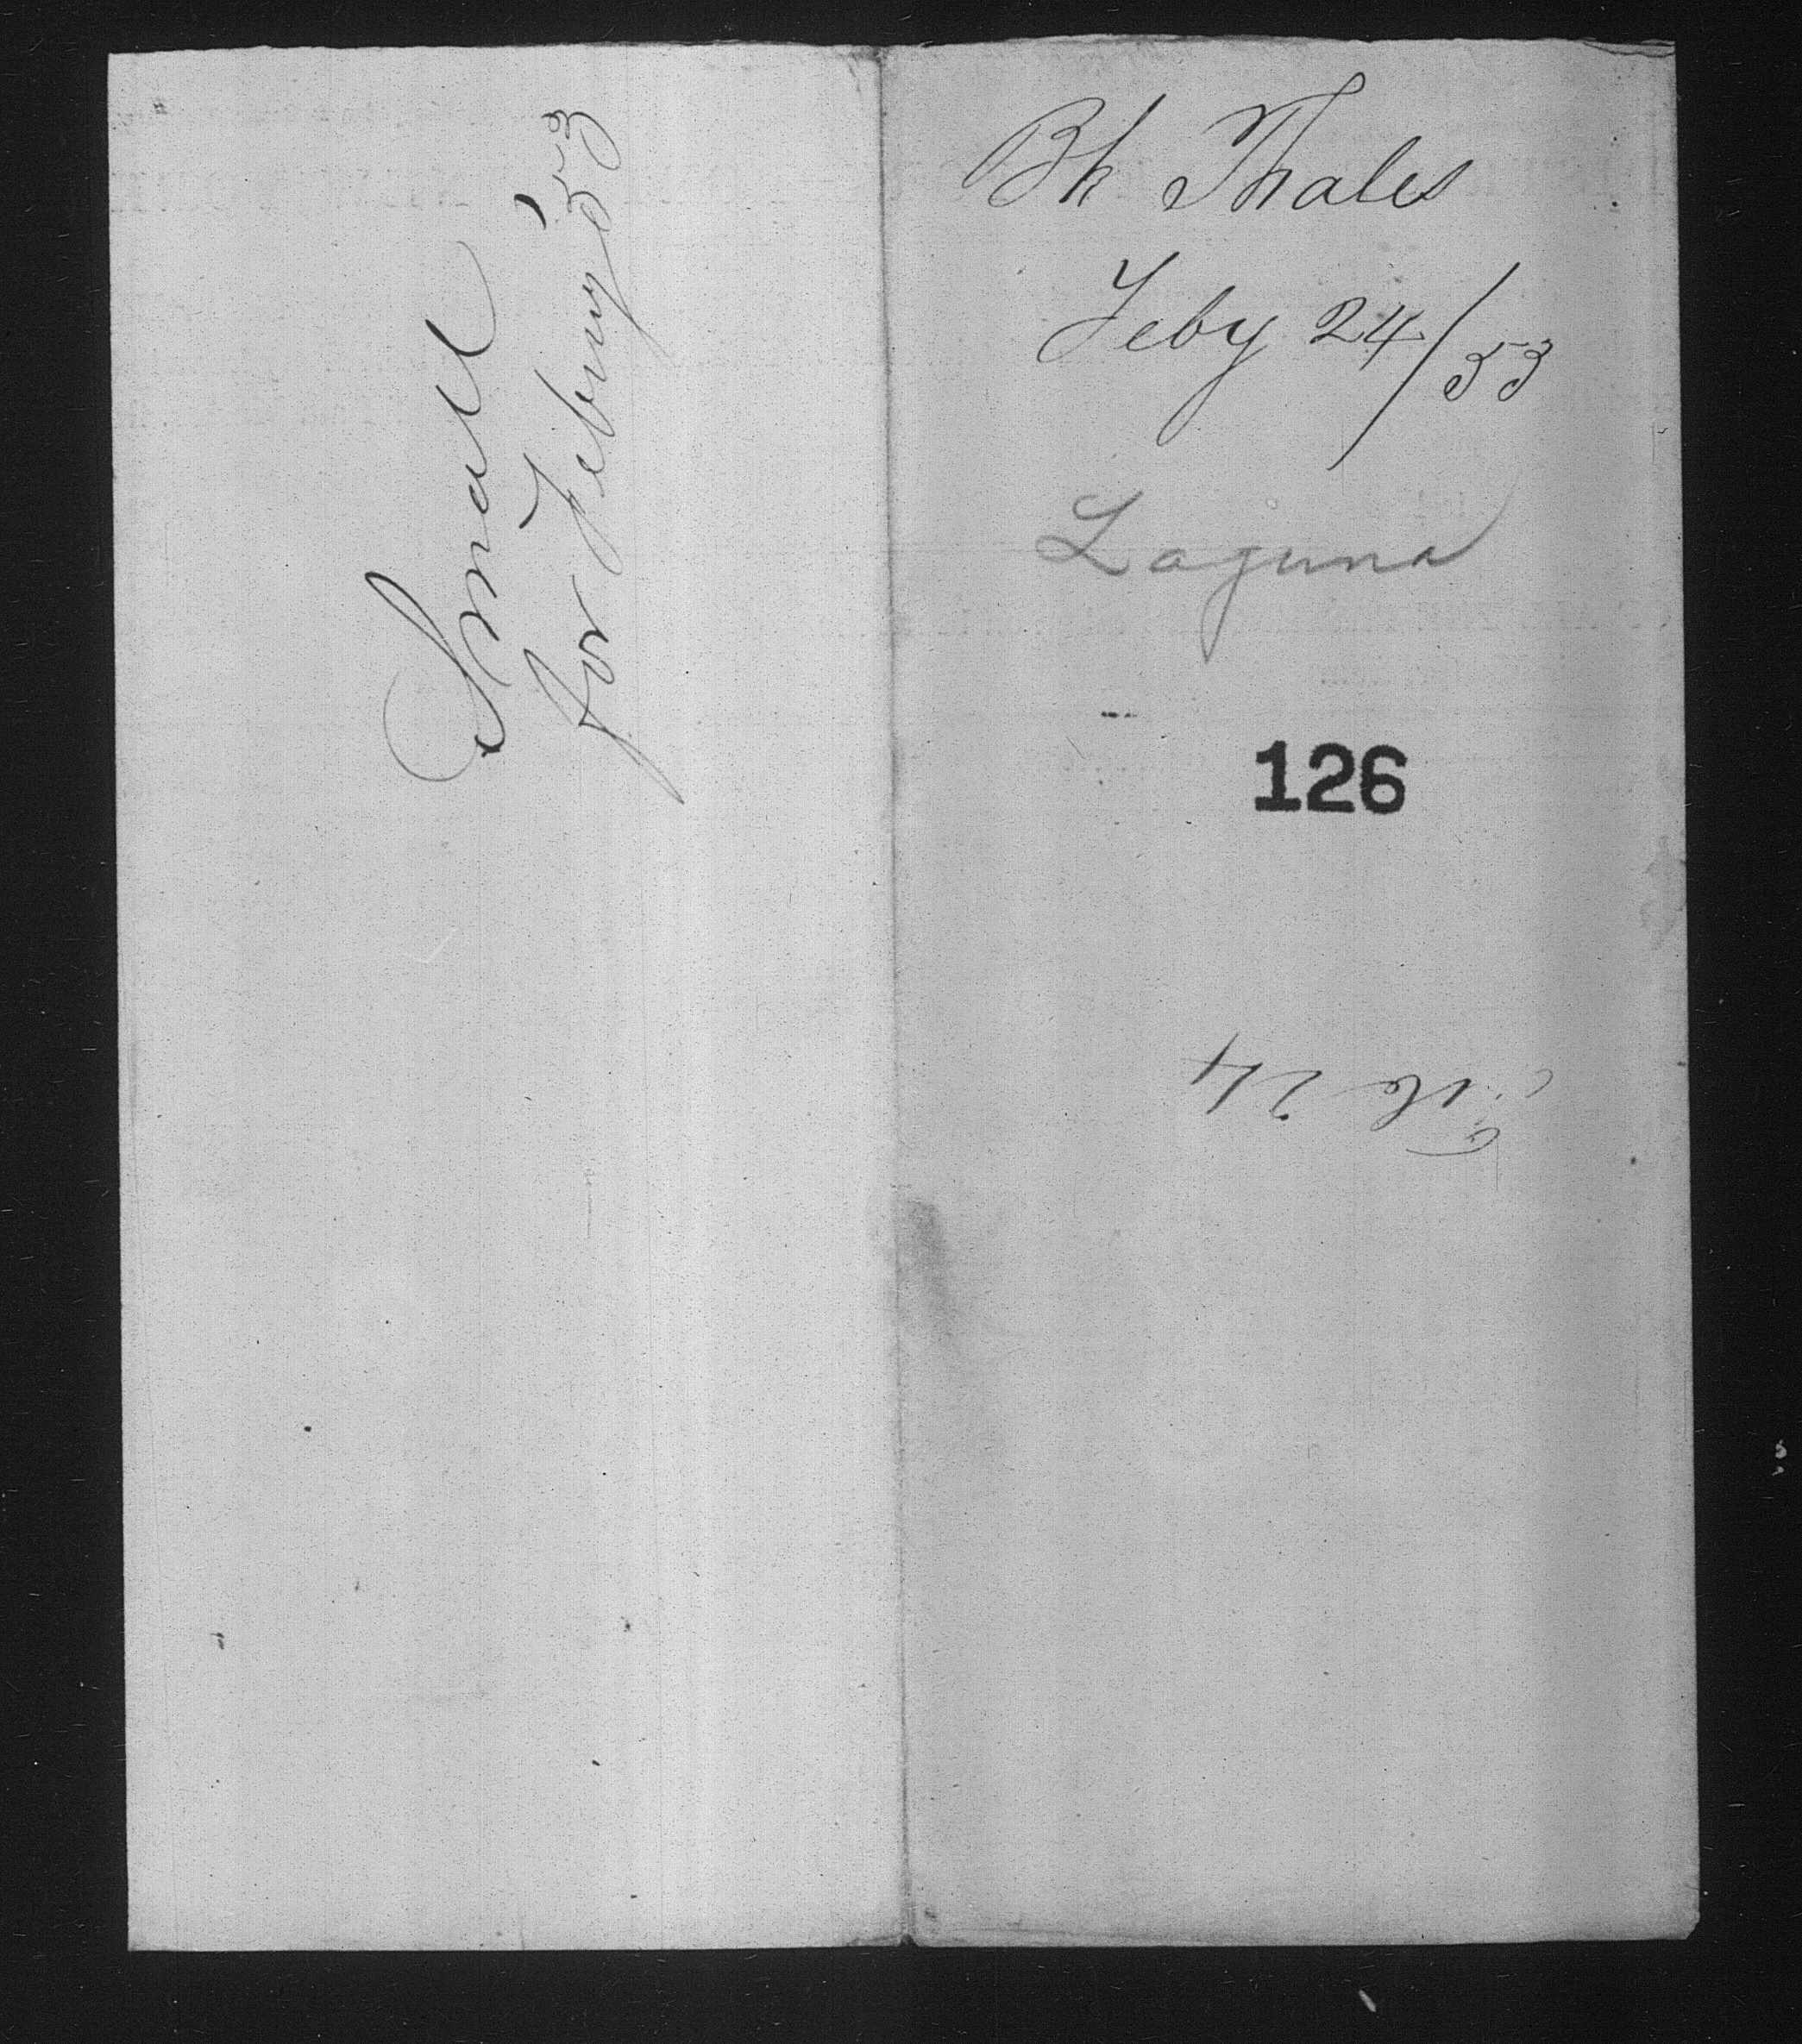 Small
for Februy '53
Bk Thales
Feby 24/53
Laguna
126
24